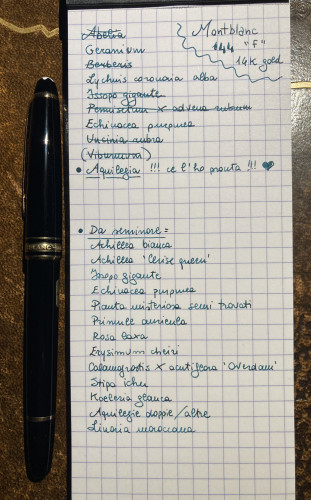 Abelia
Geranium
Berberis
Lychnis coronaria alba
Issopo gigante
Pennisetum x advena rubrum
Echinacea purpurea
Uncinia rubra
(Viburnum)
• Aquilegia !!! ce l'ho pronta !!! ♥
Montblanc
144 "F"
14K gold
• Da seminare =
Achillea bianca
Achillea 'Cerise queen'
Issopo gigante
Echinacea purpurea
Pianta misteriosa semi trovati
Primule auricula
Rosa
Erysimum cheiri
Calamagrostis x acutiflora 'Overdam'
Stipa ichu
Koeleria glauca
Aquilegie doppie/altre
Linaria maroccana